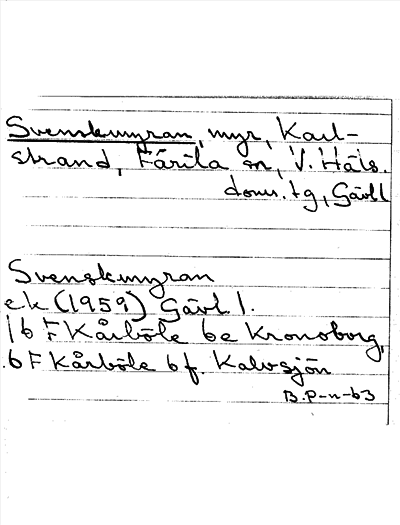 Svenskmyran, myr, Karl-
strand, Färila sn, V. Häls.
doms. tg, Gävl l
Svenskmyran
ek (1959) Gävl. l.
16 F Kårböle 6e Kronoborg,
6 F Kårböle 6f. Kalvsjön
B. P-n-63